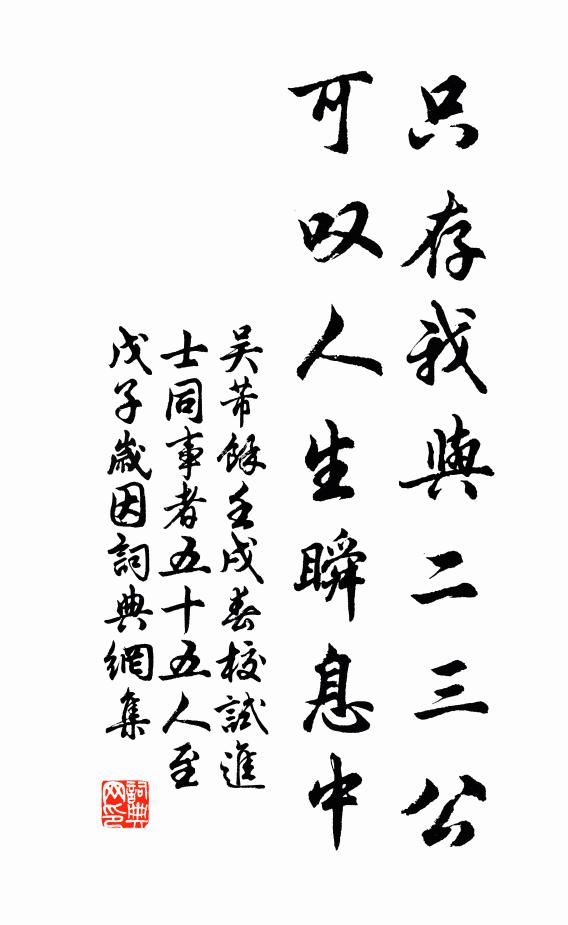 只存我與二三公
可叹人生瞬息中
吴芾餘壬戌春校試進
士同事者五十五人至
戊子歲因詞典網集
詞典
网印